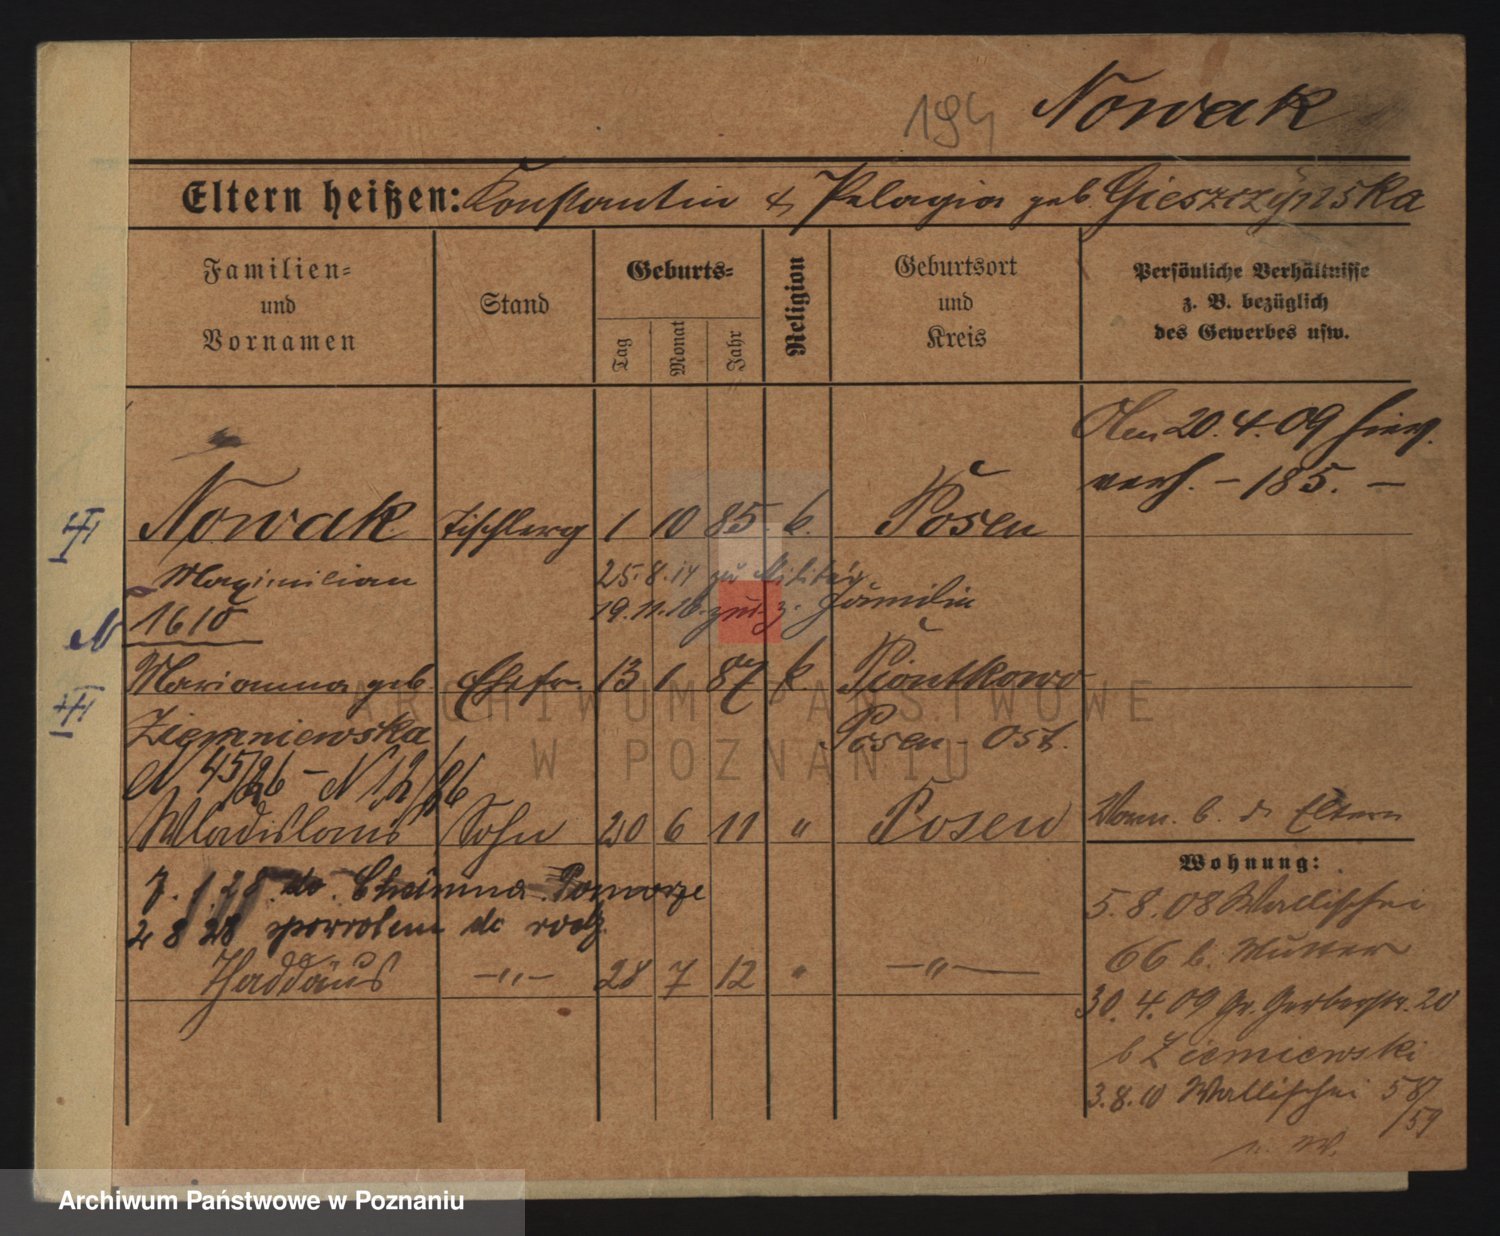 194 Nowak
Eltern heißen: Konstantin & Pelagia geb. Gieszczyńska
Familien-
und
Vornamen
Stand
Geburts-
Tag
Monat
Jahr
Religion
Geburtsort
und
Kreis
Persönliche Verhältnisse
z. B. bezüglich
des Gewerbes usw.
Am 20.4.09 hier
verh. – 185. –
Nowak Tischlerg 1 10 85 k. Posen
Maximilian 25.8.14 zu Militär
1610 19.11.18 zur. z. Familie
Marianna geb. Ehefr. 13 1 87 k. Piontkowo
Ziemniewska Posen-Ost.
N 45/26 – N 12/86
Wladislaus Sohn 20 6 11 " Posen
Vorm. b. d. Eltern
7. 1.28. do Chełmna Pomorze
2 8 28 do rodz.
Thaddäus –"– 28 7 12 " –"–
Wohnung:
5.8.08 Wallischei
66 b. Mutter
30.4.09 Gr. Gerberstr. 20
b Ziemiewski
3.8.10 Wallischei 58/59
ARCHIWUM PAŃSTWOWE
W POZNANIU
Archiwum Państwowe w Poznaniu